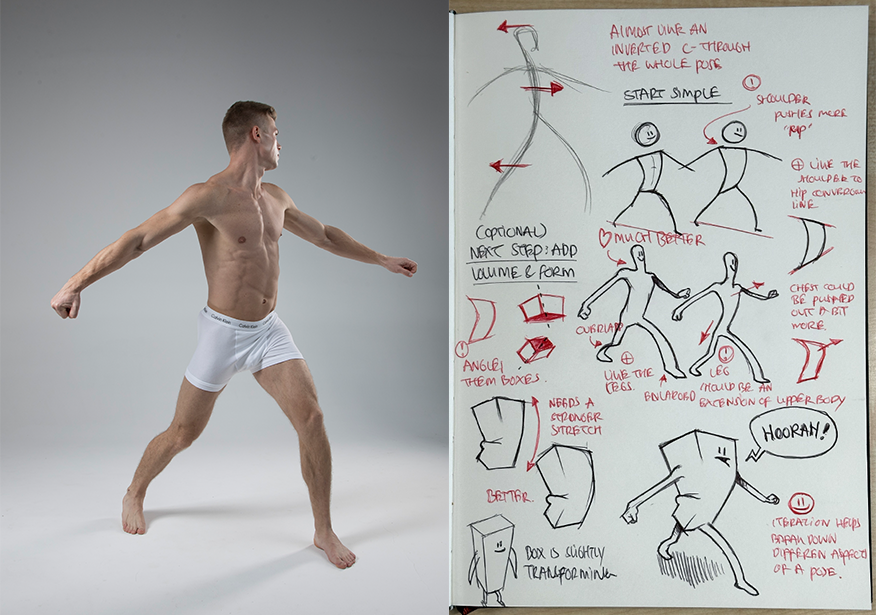 Calvin Klein
ALMOST LIKE AN
INVERTED C-THROUGH
THE WHOLE POSE
START SIMPLE
SHOULDER
PUSHES MORE
"UP"
LIKE THE
SHOULDER TO
HIP CONVERGING
LINE.
(OPTIONAL)
NEXT STEP: ADD
VOLUME & FORM
MUCH BETTER
CHEST COULD
BE PUSHED
OUT A BIT
MORE.
OVERLAP
ANGLE!
THEM BOXES.
LIKE THE
LEGS.
ENLARGED
LEG
SHOULD BE AN
EXTENSION OF UPPER BODY
NEEDS A
STRONGER
STRETCH
HOORAH!
BETTER.
BOX IS SLIGHTLY
TRANSFORMING
ITERATION HELPS
BREAK DOWN
DIFFEREN ASPECTS
OF A POSE.